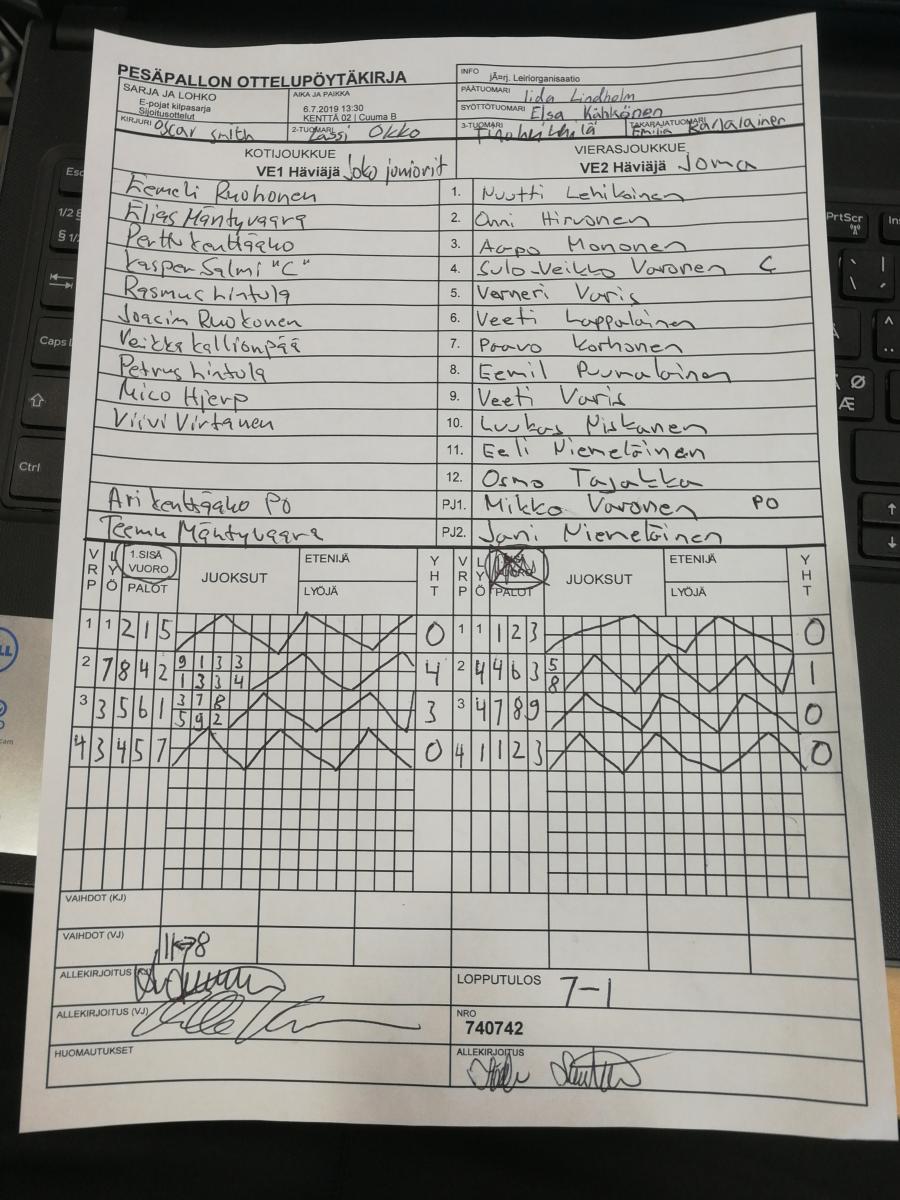 PESÄPALLON OTTELUPÖYTÄKIRJA
INFO jÃ¤rj. Leiriorganisaatio
SARJA JA LOHKO
E-pojat kilpasarja
Sijoitusottelut
AIKA JA PAIKKA
6.7.2019 13:30
KENTTÄ 02 | Cuuma B
PÄÄTUOMARI Iida Lindholm
SYÖTTÖTUOMARI Elsa Kähkönen
KIRJURI Oscar Smith
2-TUOMARI Lassi Okko
3-TUOMARI
TAKARAJATUOMARI Emilia Karjalainen
KOTIJOUKKUE
VE1 Häviäjä Joko juniorit
VIERASJOUKKUE
VE2 Häviäjä Joma
Eemeli Ruohonen 1. Nuutti Lehikoinen
Elias Mäntyvaara 2. Onni Hirvonen
Perttu Kenttääko 3. Aapo Mononen
Kasper Salmi "C" 4. Sulo-Veikko Varonen C
Rasmus Lintula 5. Verneri Varis
Joacim Ruokonen 6. Veeti Lappalainen
Veikka Kallionpää 7. Paavo Korhonen
Petrus Lintula 8. Eemil Puumalainen
Mico Hjerp 9. Veeti Varis
Viivi Virtanen 10. Luukas Niskanen
11. Eeli Niemeläinen
12. Osmo Tajakka
Ari Kenttääko PO PJ1. Mikko Varonen PO
Teemu Mäntyvaara PJ2. Jani Niemeläinen
VRP LYÖ 1.SISÄ VUORO PALOT JUOKSUT ETENIJÄ LYÖJÄ YHT VRP LYÖ 1.SISÄ VUORO PALOT JUOKSUT ETENIJÄ LYÖJÄ YHT
1 1 2 1 5 0 1 1 1 2 3 0
2 7 8 4 2 9 1 3 3 4 2 4 4 6 3 5 1
1 3 3 4 8
3 3 5 6 1 3 7 8 3 3 4 7 8 9 0
5 9 2
4 3 4 5 7 0 4 1 1 2 3 0
VAIHDOT (KJ)
VAIHDOT (VJ) 11↔8
ALLEKIRJOITUS
LOPPUTULOS 7-1
ALLEKIRJOITUS (VJ)
NRO
740742
HUOMAUTUKSET
ALLEKIRJOITUS
Esc
1/2 §
§ 1/
Caps L
Ctrl
PrtScr
Ins
Ø
Æ